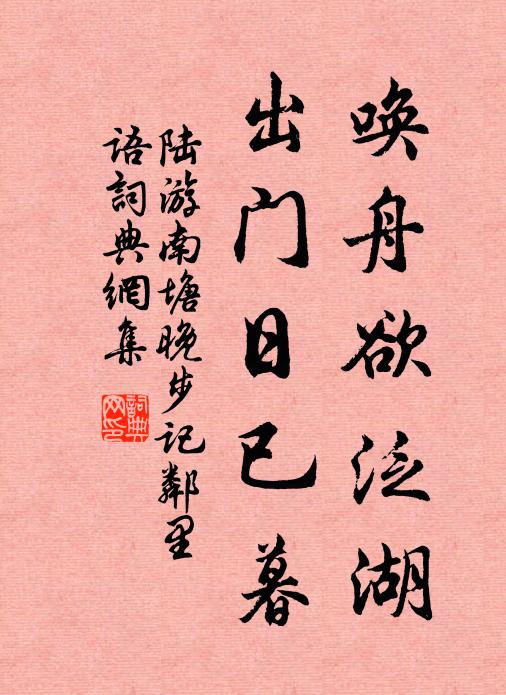 唤舟欲泛湖
出门日已暮
陆游南塘晚步记鄰里
语詞典網集
詞典网印